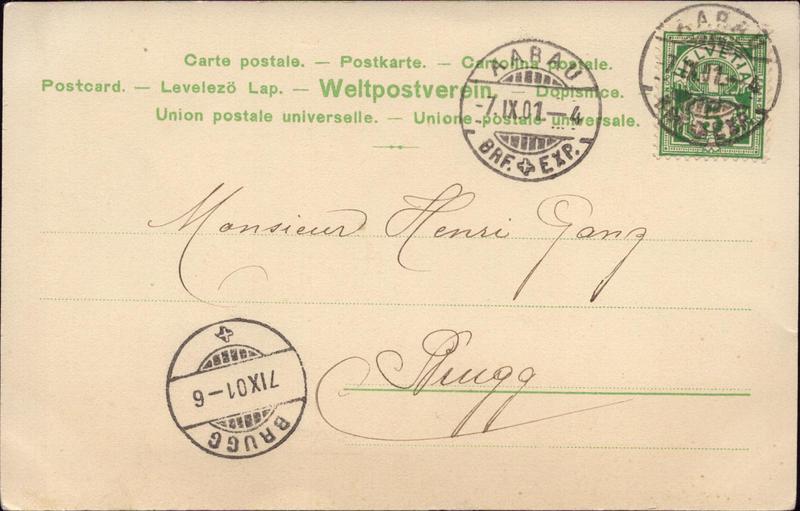 Carte postale. — Postkarte. — Cartolina postale.
Postcard. — Levelező Lap. — Weltpostverein. — Dopisnice.
Union postale universelle. — Unione postale universale.
AARAU
-7.IX.01.-4
BRF. EXP.
AARAU
HELVETIA
IX.01.-4
EXP.
Monsieur Henri Gang
Brugg
7IX01-6
BRUGG